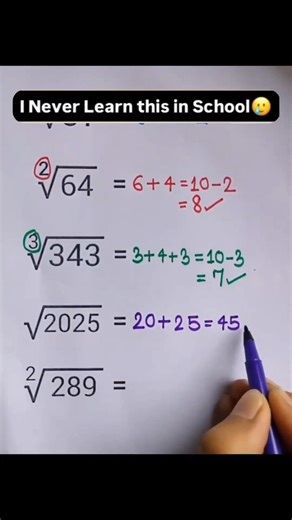 I Never Learn this in School🥲
²√64 = 6+4=10-2
=8✓
³√343 = 3+4+3=10-3
=7✓
√2025 = 20+25=45
²√289 =